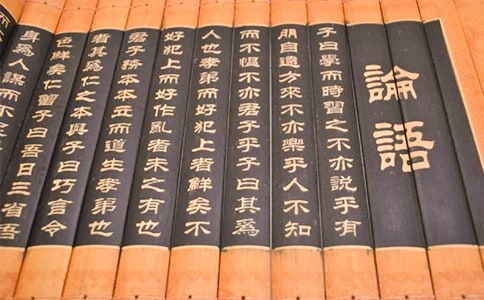 論語
子曰學而時習之不亦說乎有
朋自遠方來不亦樂乎人不知
而不慍不亦君子乎子曰其爲
人也孝弟而好犯上者鮮矣不
好犯上而好作亂者未之有也
君子務本本立而道生孝弟也
者其爲仁之本與子曰巧言令
色鮮矣仁曾子曰吾日三省吾
身爲人謀而不